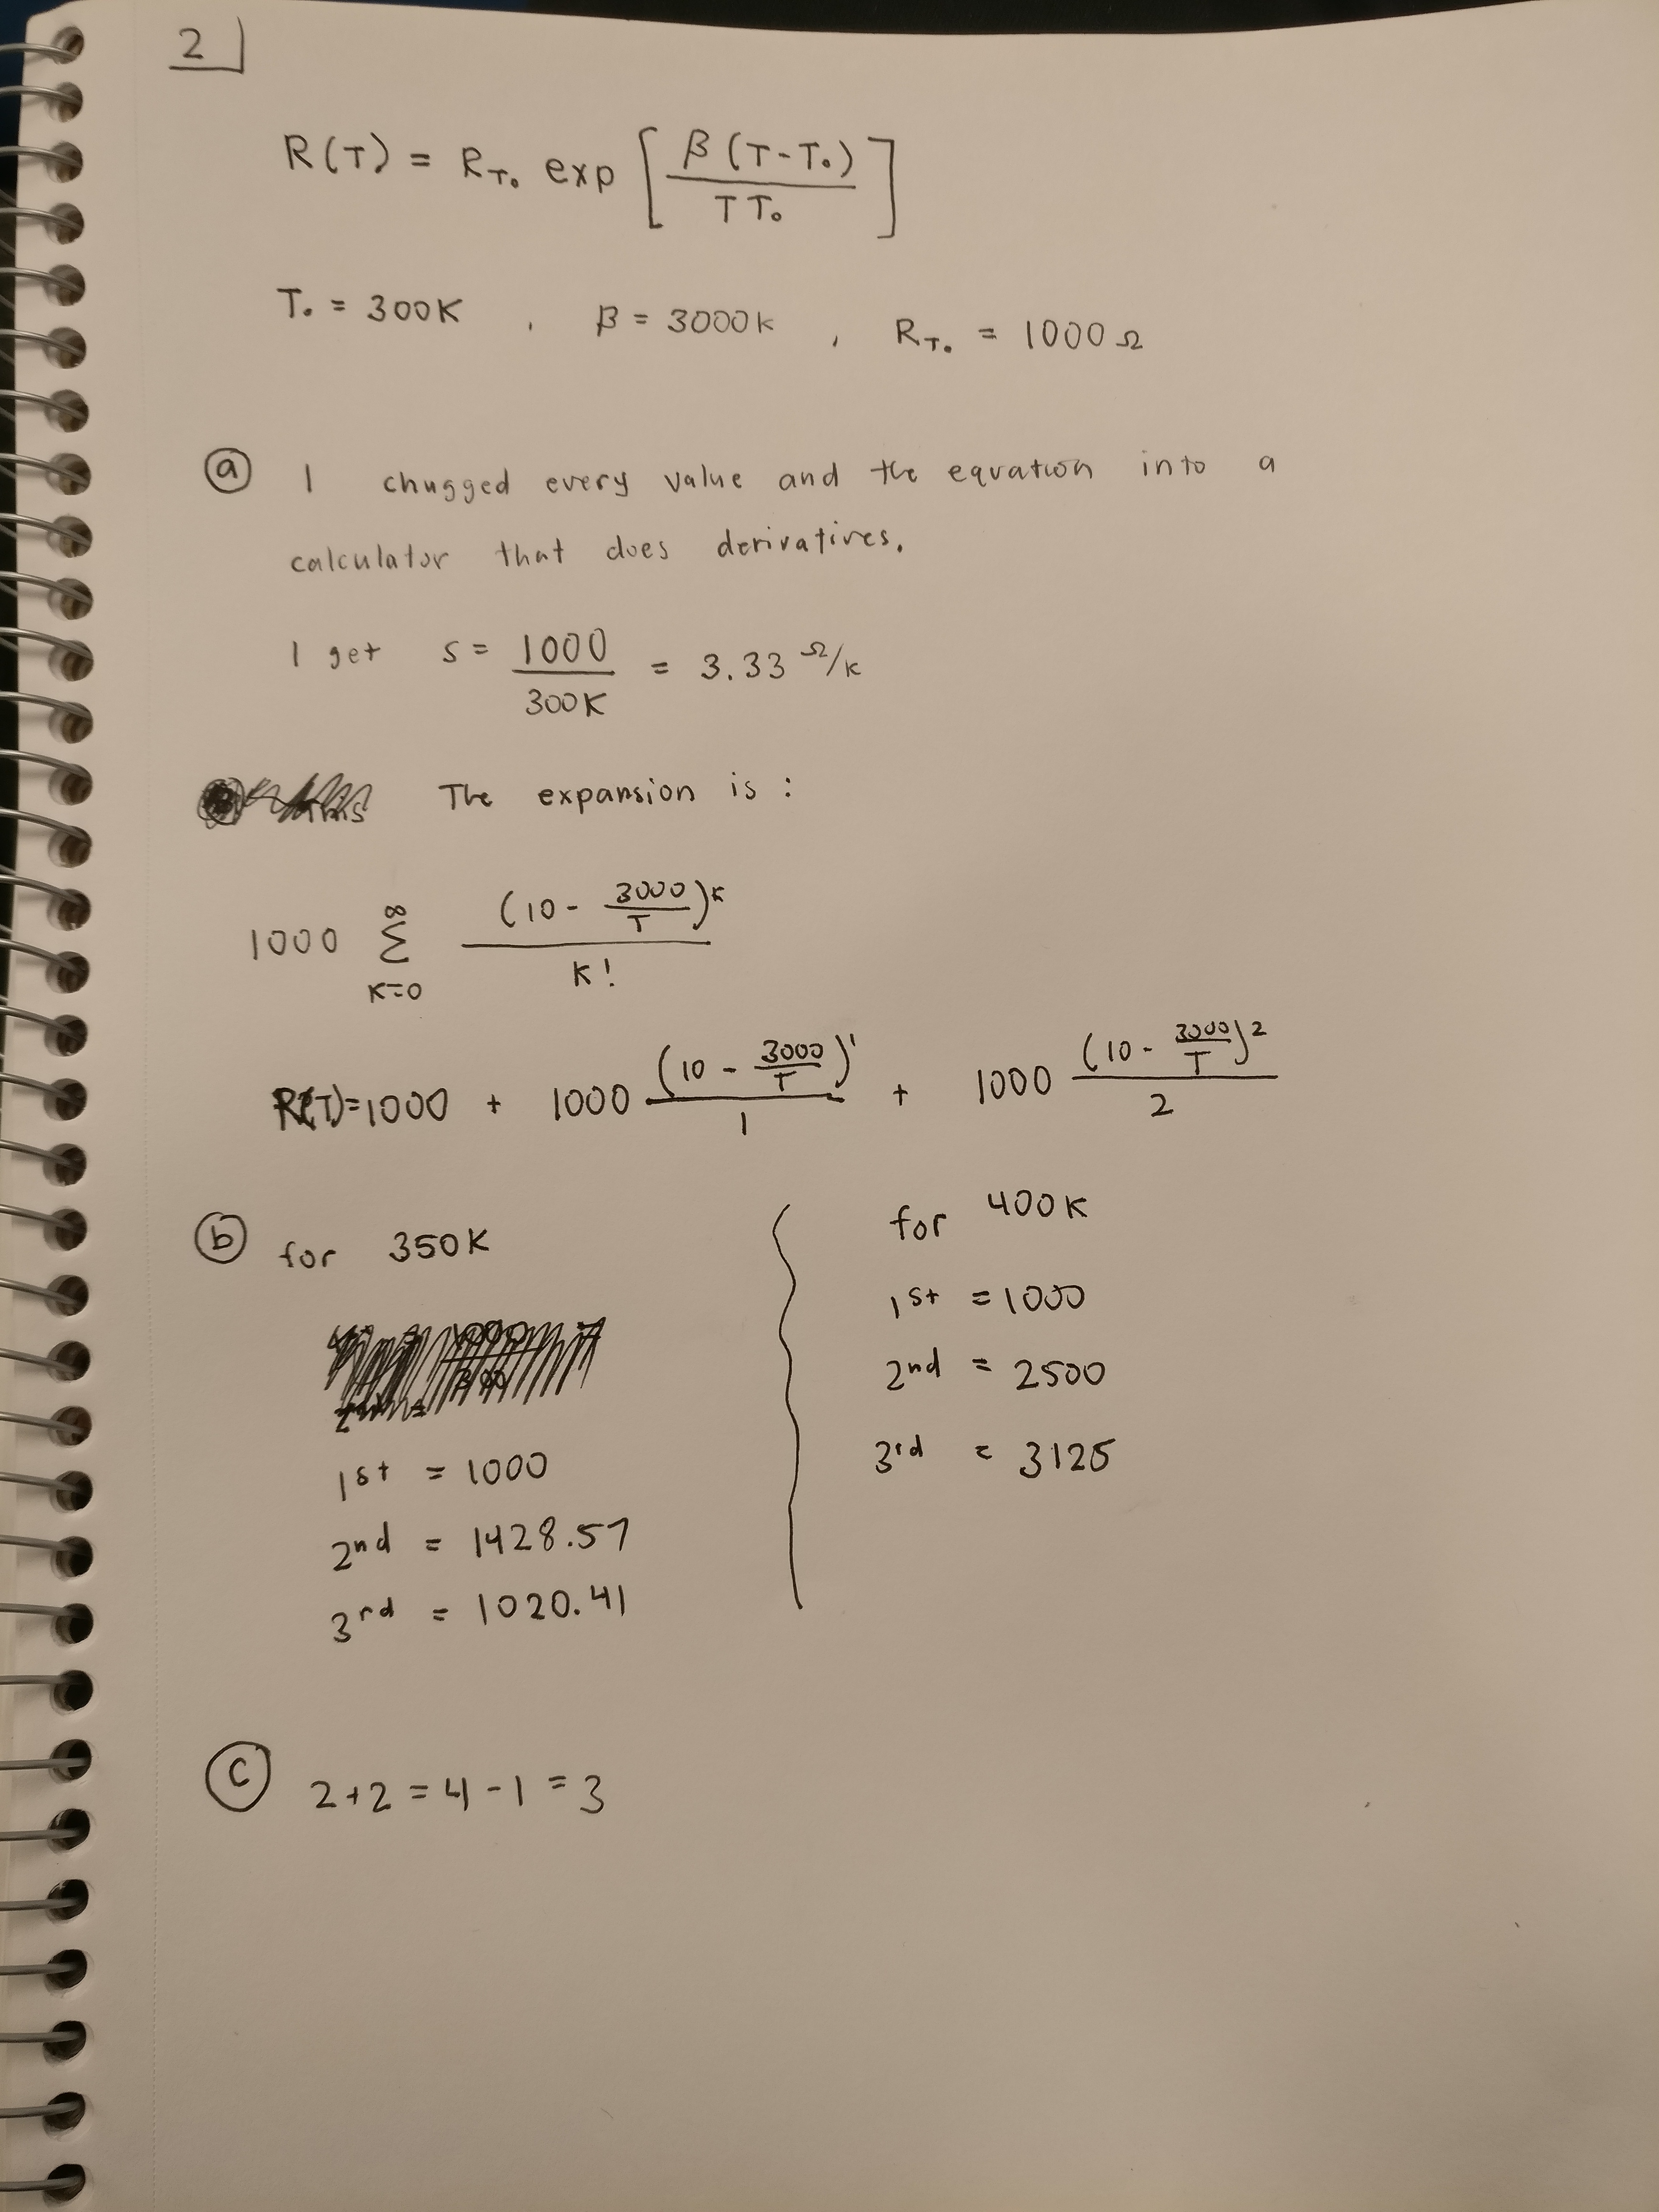 2
R(T) = R_T₀ exp [ β (T - T₀) / T T₀ ]
T₀ = 300K , β = 3000K , R_T₀ = 1000 Ω
ⓐ I chugged every value and the equation into a
calculator that does derivatives.
I get s = 1000 / 300K = 3.33 Ω/K
The expansion is :
1000 ∑_{K=0}^{∞} (10 - 3000/T)^K / K!
R(T) = 1000 + 1000 (10 - 3000/T)^1 / 1 + 1000 (10 - 3000/T)^2 / 2
ⓑ for 350K
1st = 1000
2nd = 1428.57
3rd = 1020.41
for 400K
1st = 1000
2nd = 2500
3rd = 3125
ⓒ 2+2 = 4 - 1 = 3